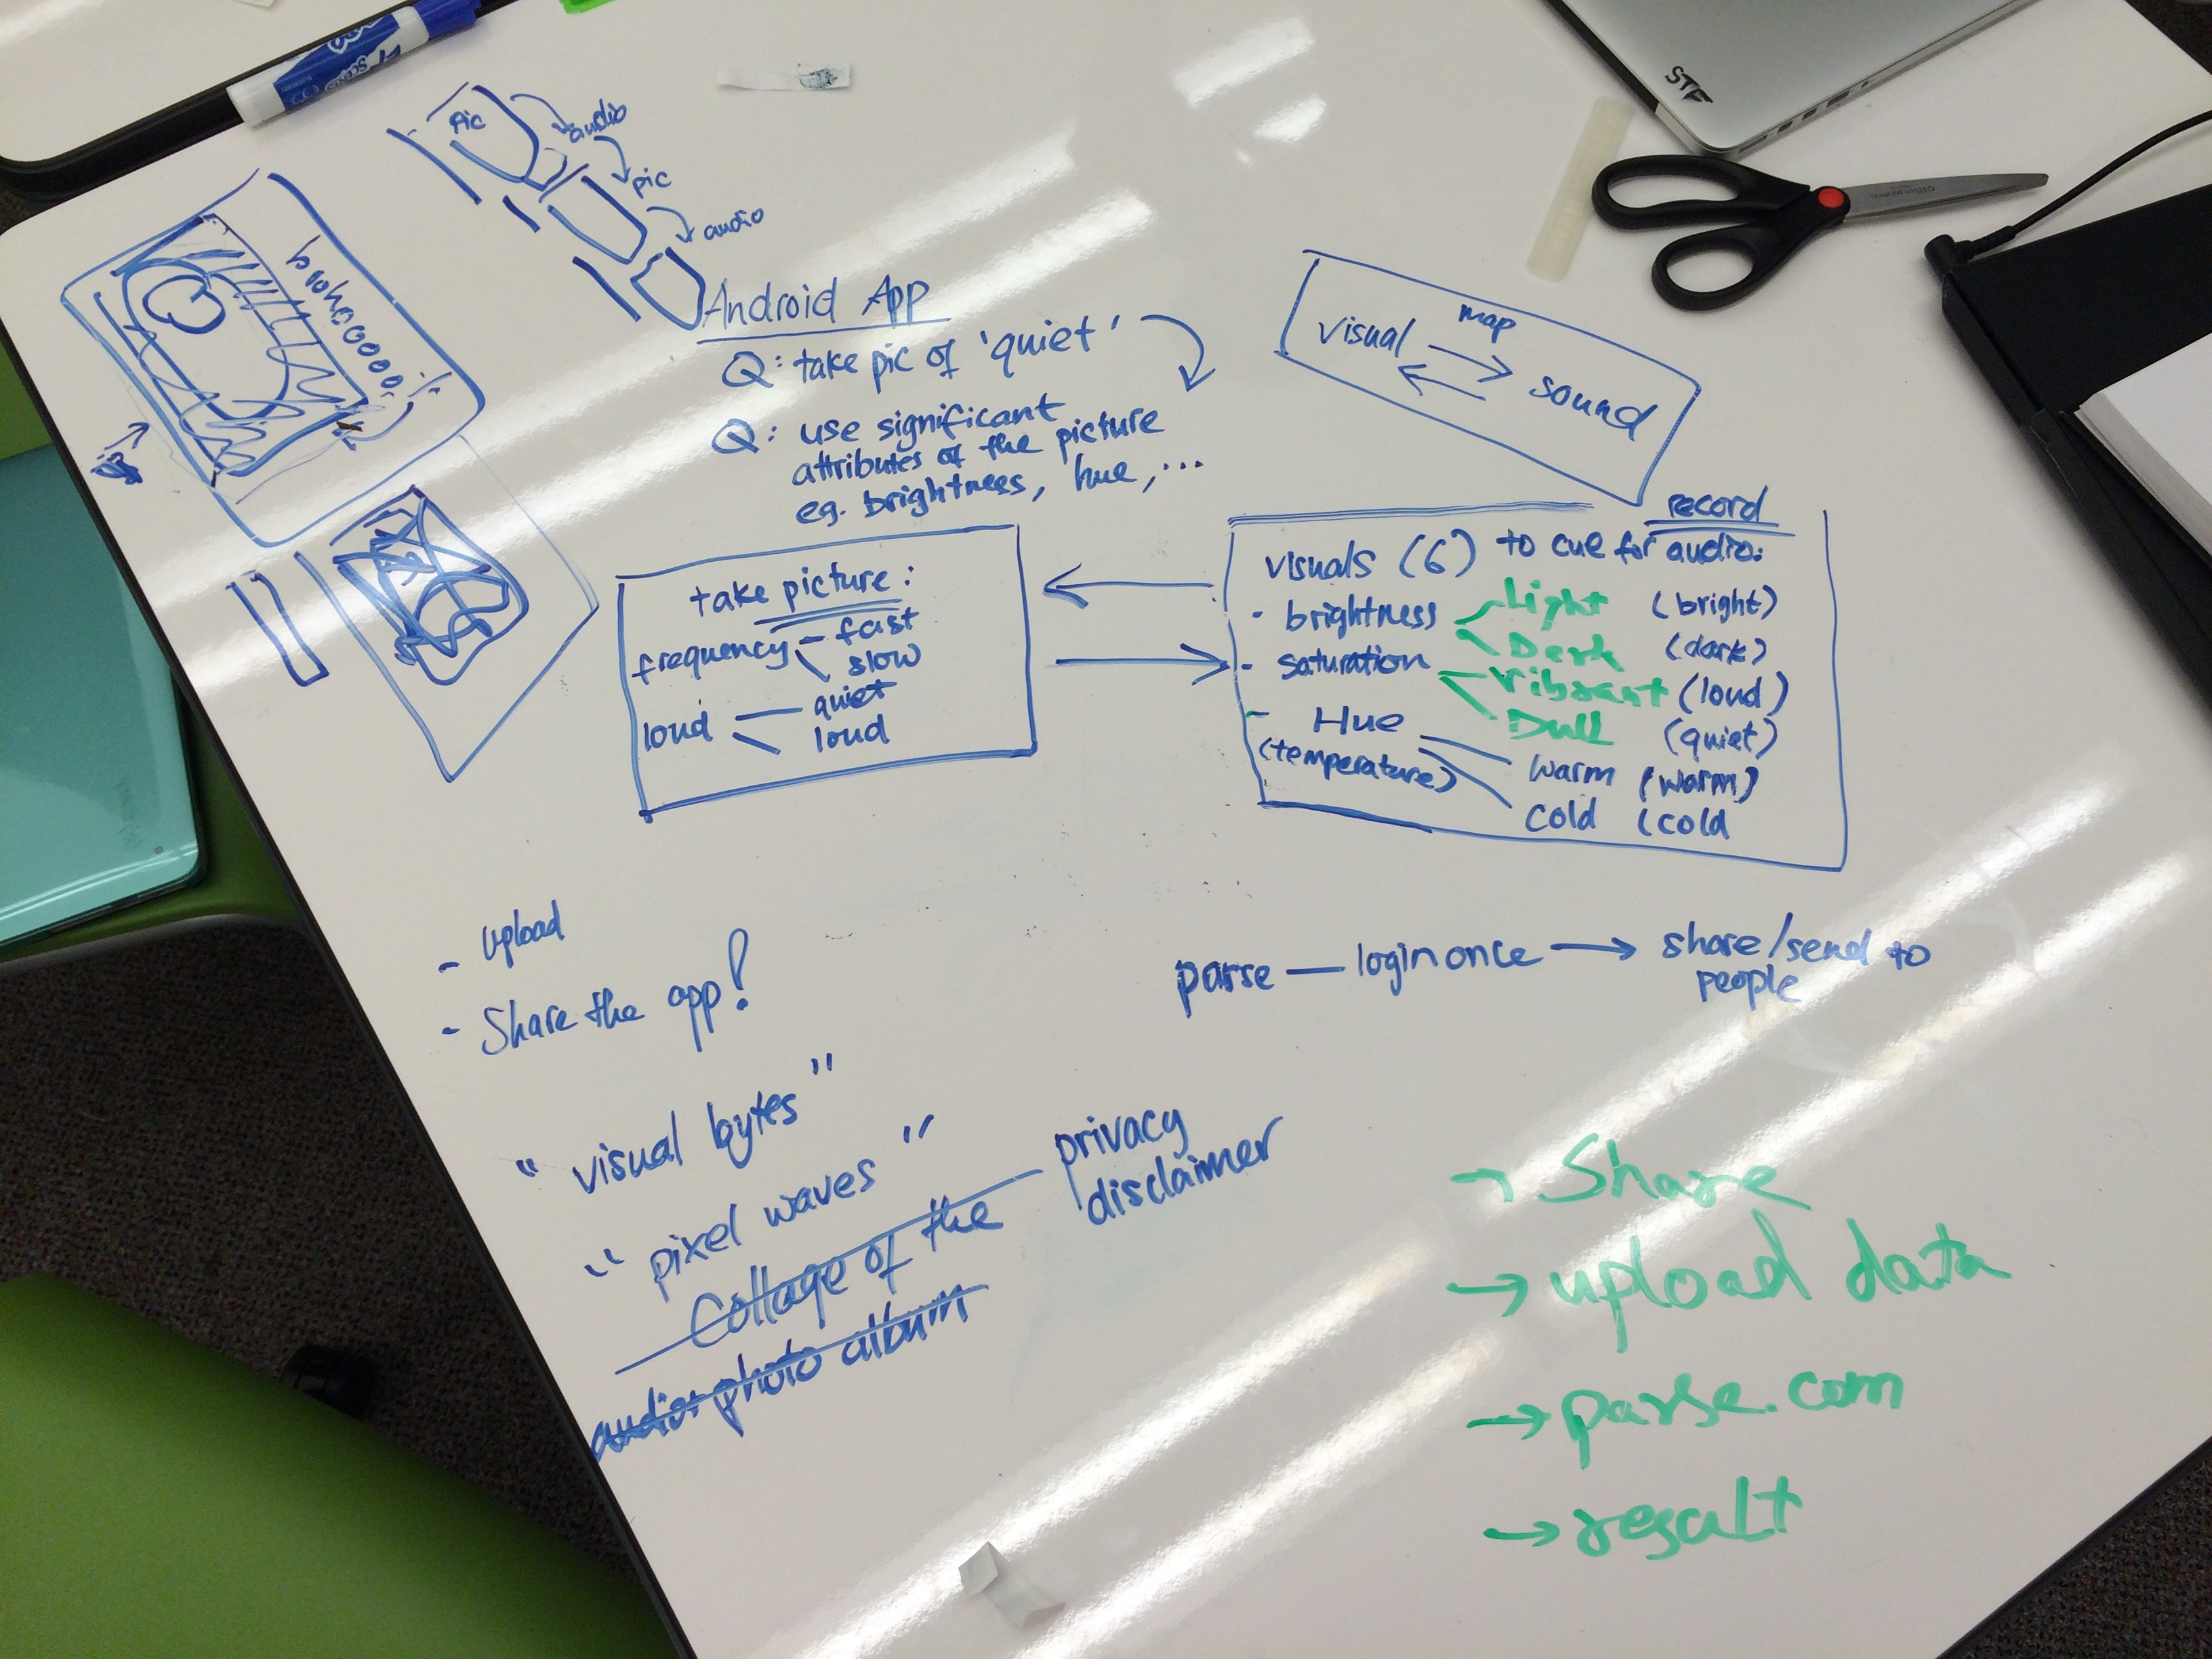 Pic
audio
pic
audio
STF
Android App
Q: take pic of 'quiet'
Q: use significant
attributes of the picture
eg. brightness, hue, ...
map
visual
sound
take picture:
frequency - fast
slow
loud
quiet
loud
record
visuals (6) to cue for audio:
- brightness Light (bright)
Dark (dark)
- saturation Vibrant (loud)
Dull (quiet)
- Hue
(temperature)
warm (warm)
cold (cold
- upload
- Share the app!
parse — login once → share/send to
people
"visual bytes"
"pixel waves"
privacy
disclaimer
Collage of the
audio photo album
→ Share
→ upload data
→ parse.com
→ result